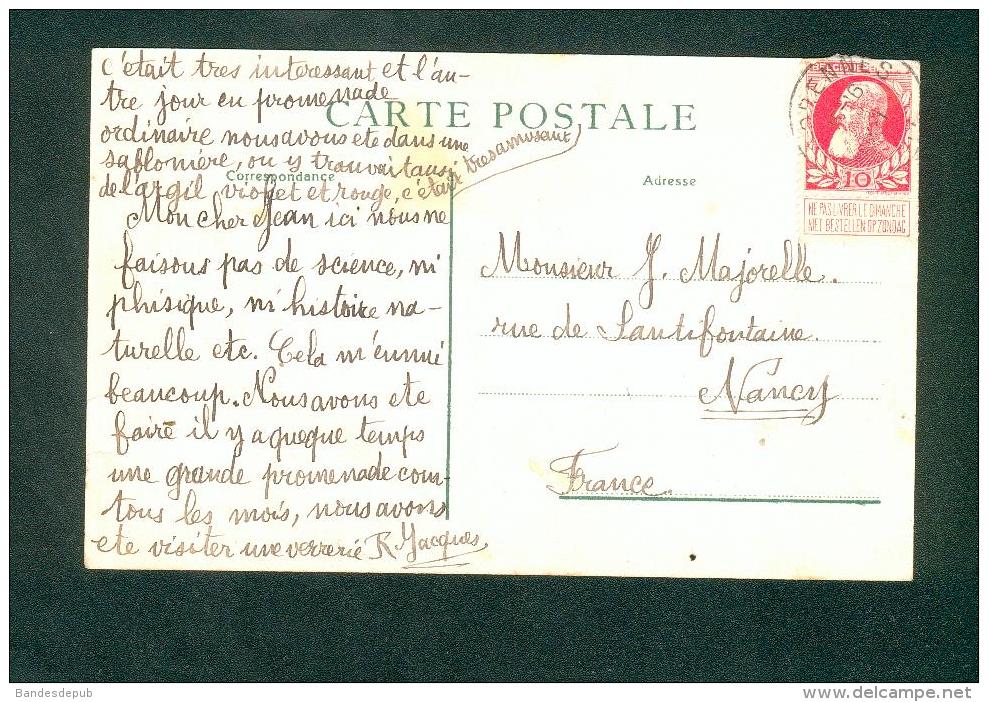 c'était tres interessant et l'au-
tre jour en promenade
CARTE POSTALE
ordinaire nous avons ete dans une
sablonière, ou y trouvait aussi
Correspondance
Adresse
de l'argil violet et rouge, c'était tres amusant
Mon cher Jean ici nous ne
faisons pas de science, ni
phisique, ni histoire na-
turelle etc. Cela m'ennui
beaucoup. Nous avons ete
faire il y a queque temps
une grande promenade com-
tous les mois, nous avons
ete visiter une verrerie R. Jacques
BELGIQUE
10
NE PAS LIVRER LE DIMANCHE
NIET BESTELLEN OP ZONDAG
Monsieur J. Majorelle.
rue de
Nancy
France
Bandesdepub
www.delcampe.net